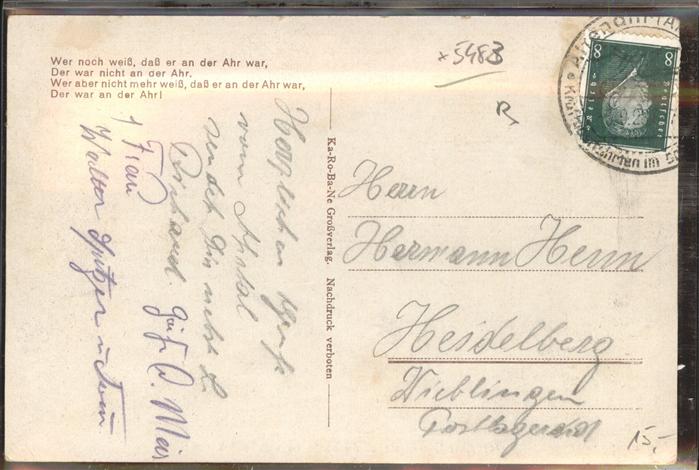 Wer noch weiß, daß er an der Ahr war,
Der war nicht an der Ahr.
Wer aber nicht mehr weiß, daß er an der Ahr war,
Der war an der Ahr!
×5483
Herzlichen Gruß
vom Ahrtal
sendet Dir nebst
Richard.
Frau
Walter
Ka-Ro-Ba-Ne Großverlag. Nachdruck verboten
8 8
Deutsches Reich
Herrn
Hermann Henn
Heidelberg
Wieblingen
Postlagernd
15,-